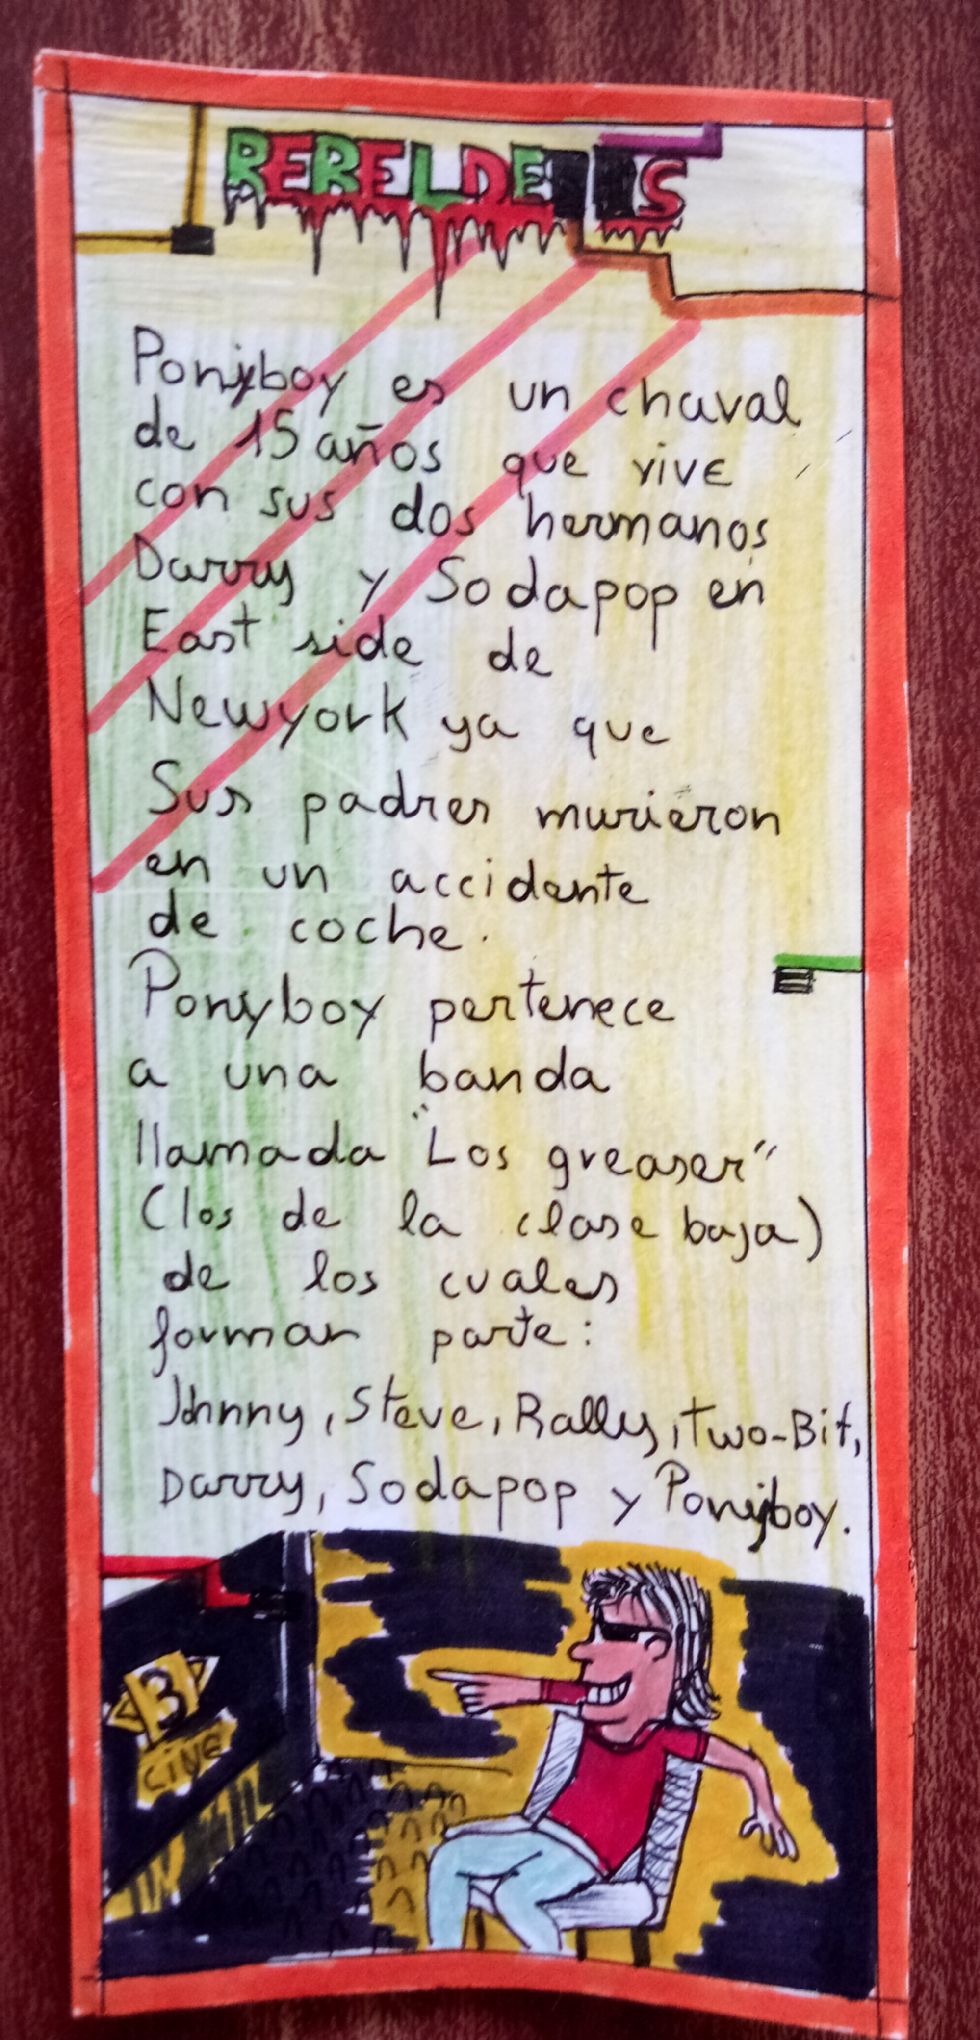 REBELDES
Ponyboy es un chaval
de 15 años que vive
con sus dos hermanos
Darry y Sodapop en
East side de
Newyork ya que
Sus padres murieron
en un accidente
de coche.
Ponyboy pertenece
a una banda
llamada "Los greaser"
(los de la clase baja)
de los cuales
forman parte:
Johnny, Steve, Rally, Two-Bit,
Darry, Sodapop y Ponyboy.
3
CINE